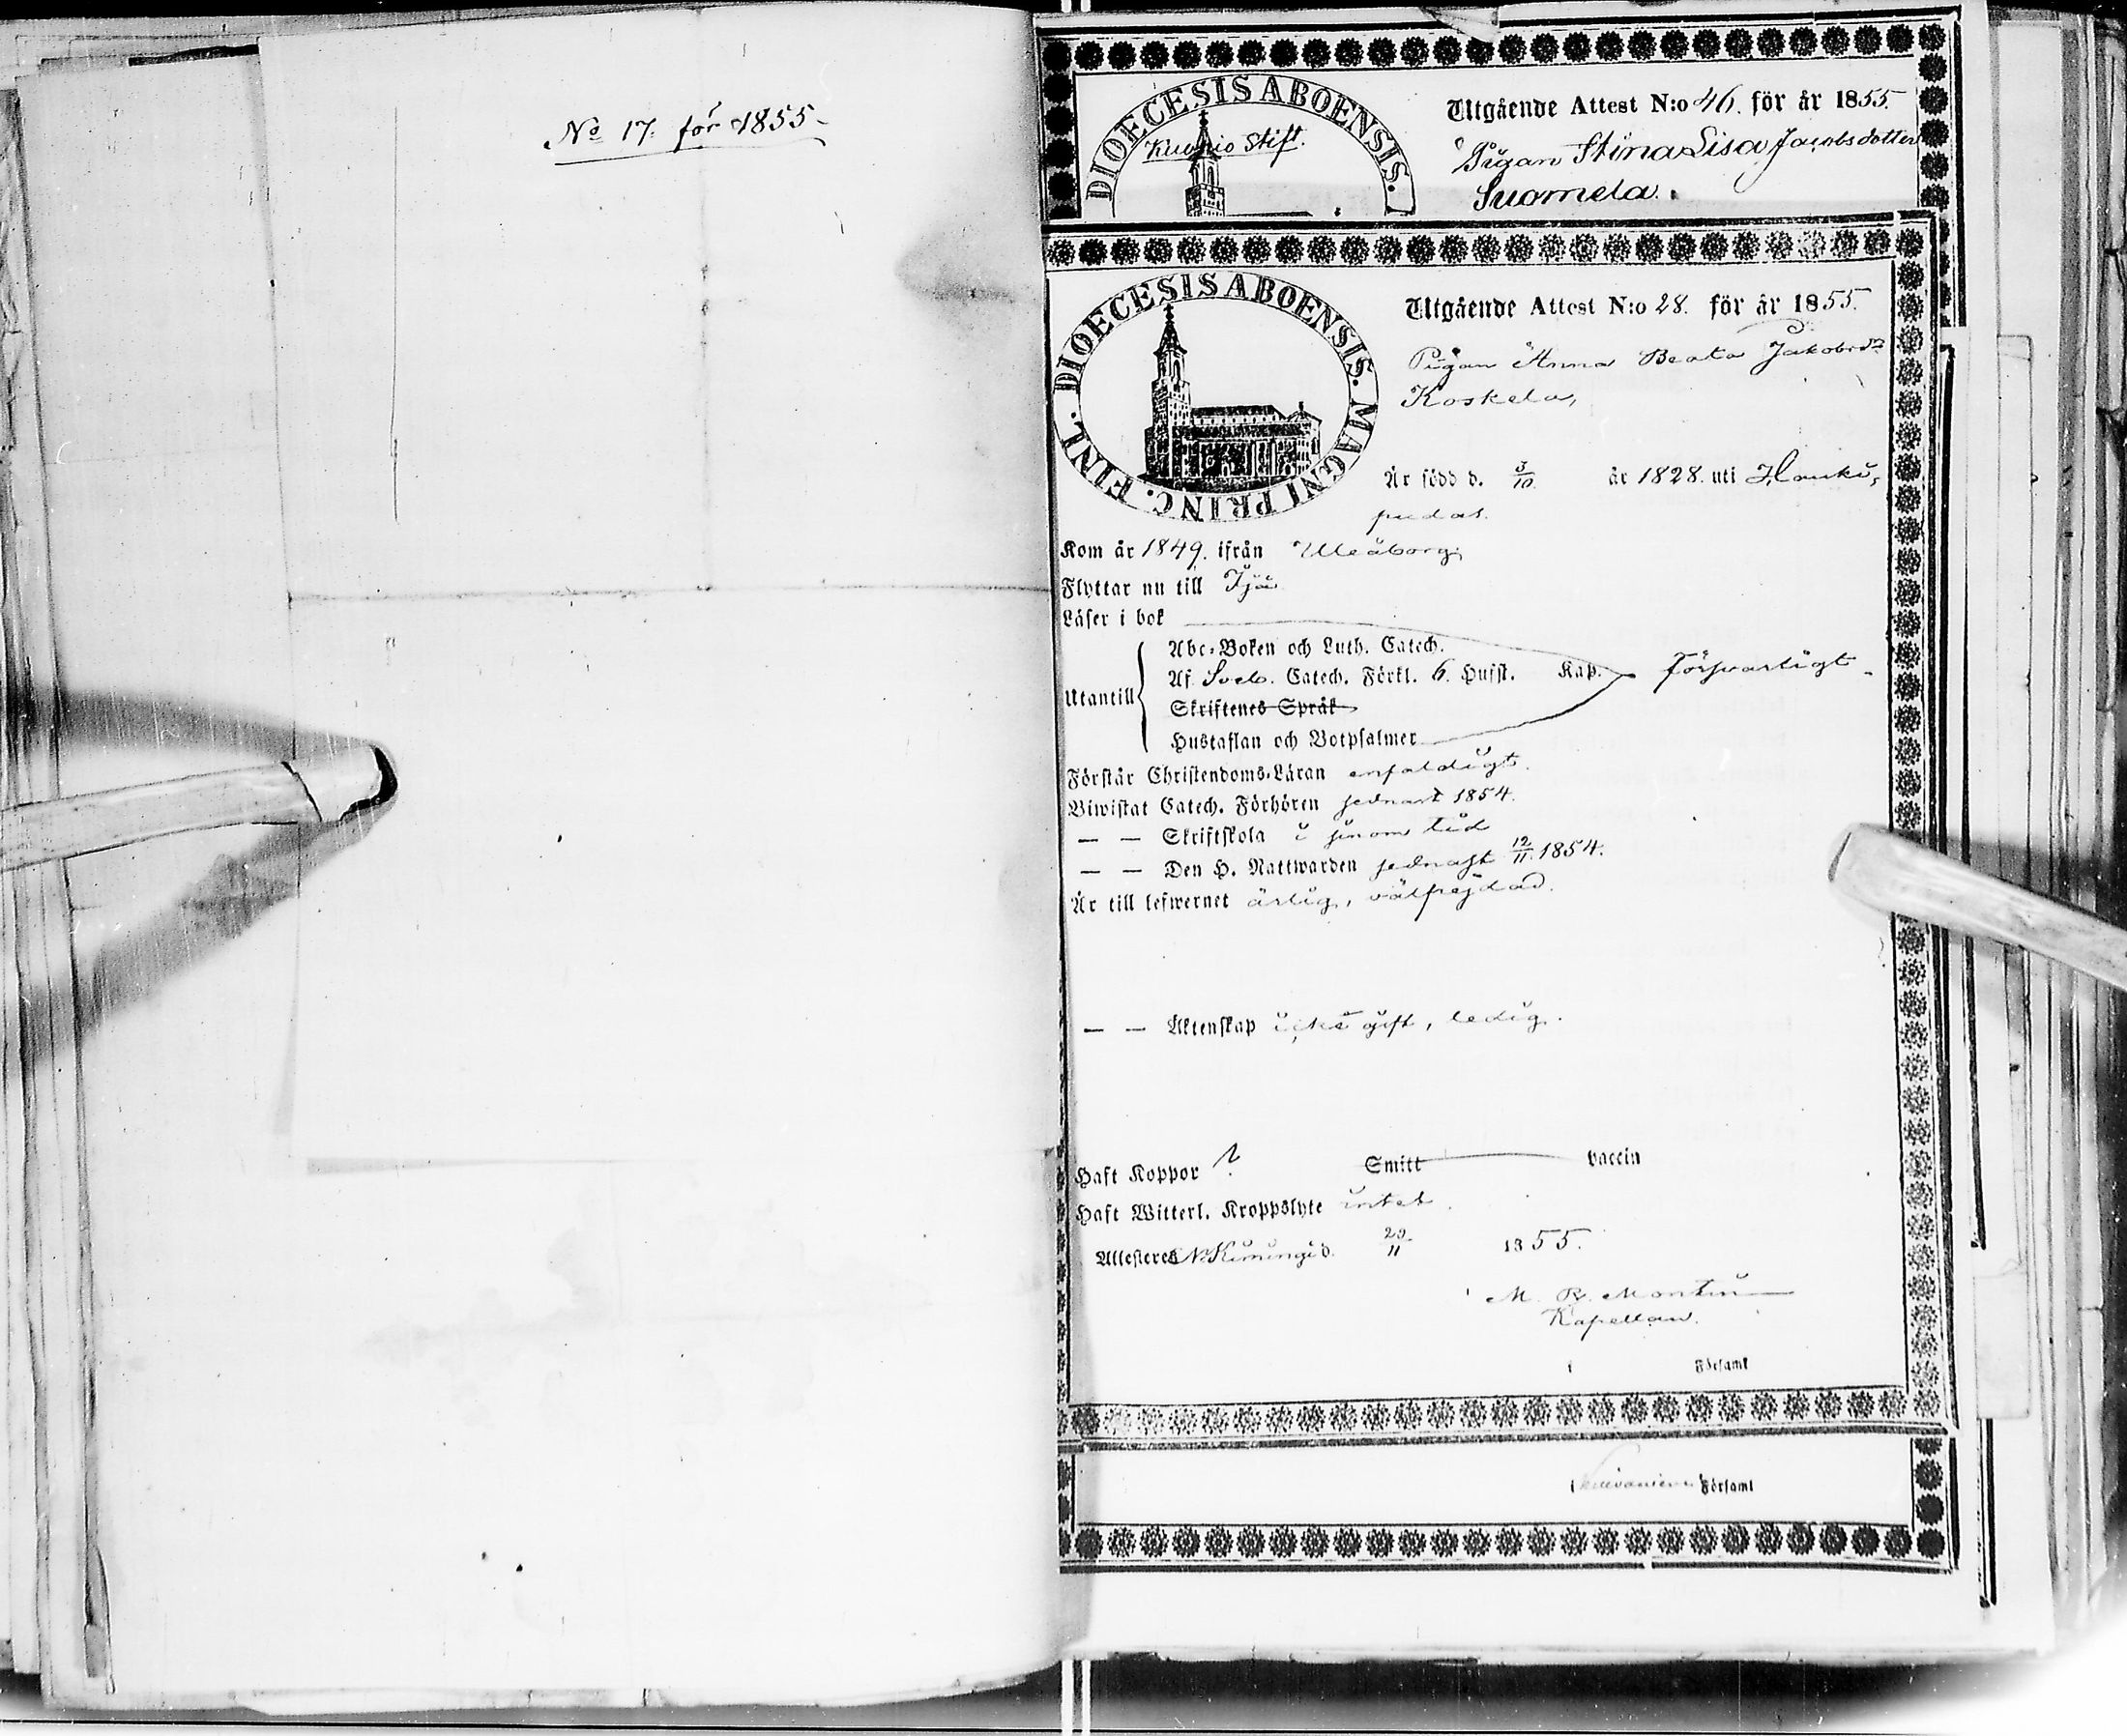 No 17. för 1855.
DIOECESIS ABOENSIS.
Kuopio Stift.
Utgående Attest N:o 46. för år 1855.
Pigan Stina Lisa Jacobsdotter
Suomela.
DIOECESIS ABOENSIS. MAGNI PRINC. FINL.
Utgående Attest N:o 28. för år 1855.
Pigan Anna Beata Jakobsdr
Koskela,
Är född d. 3/10. år 1828. uti Hauki,
pudas.
Kom år 1849. ifrån Uleåborg,
Flyttar nu till Ijo
Läser i bok
Abc-Boken och Luth. Catech.
Utantill Af Sveb. Catech. Förkl. 6. Hufst. Kap. försvarligt.
Skriftenes Språk
Hustaflan och Botpsalmer
Förstår Christendoms-Läran enfaldigt.
Biwistat Catech. Förhören sednast 1854.
— — Skriftskola i sinom tid
— — Den H. Nattwarden sednast 12/11. 1854.
Är till lefwernet ärlig, välfrejdad.
— — Äktenskap icke gift, ledig.
Haft Koppor ? Smitt vaccin
Haft Witterl. Kroppslyte intet.
Attesteres N. Kiiminge d. 29/11 1855.
M. R. Montin
Kapellan.
i Församl
i Församl